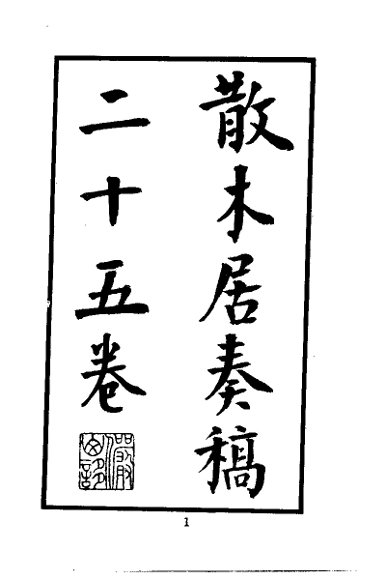 散木居奏稿
二十五卷
1